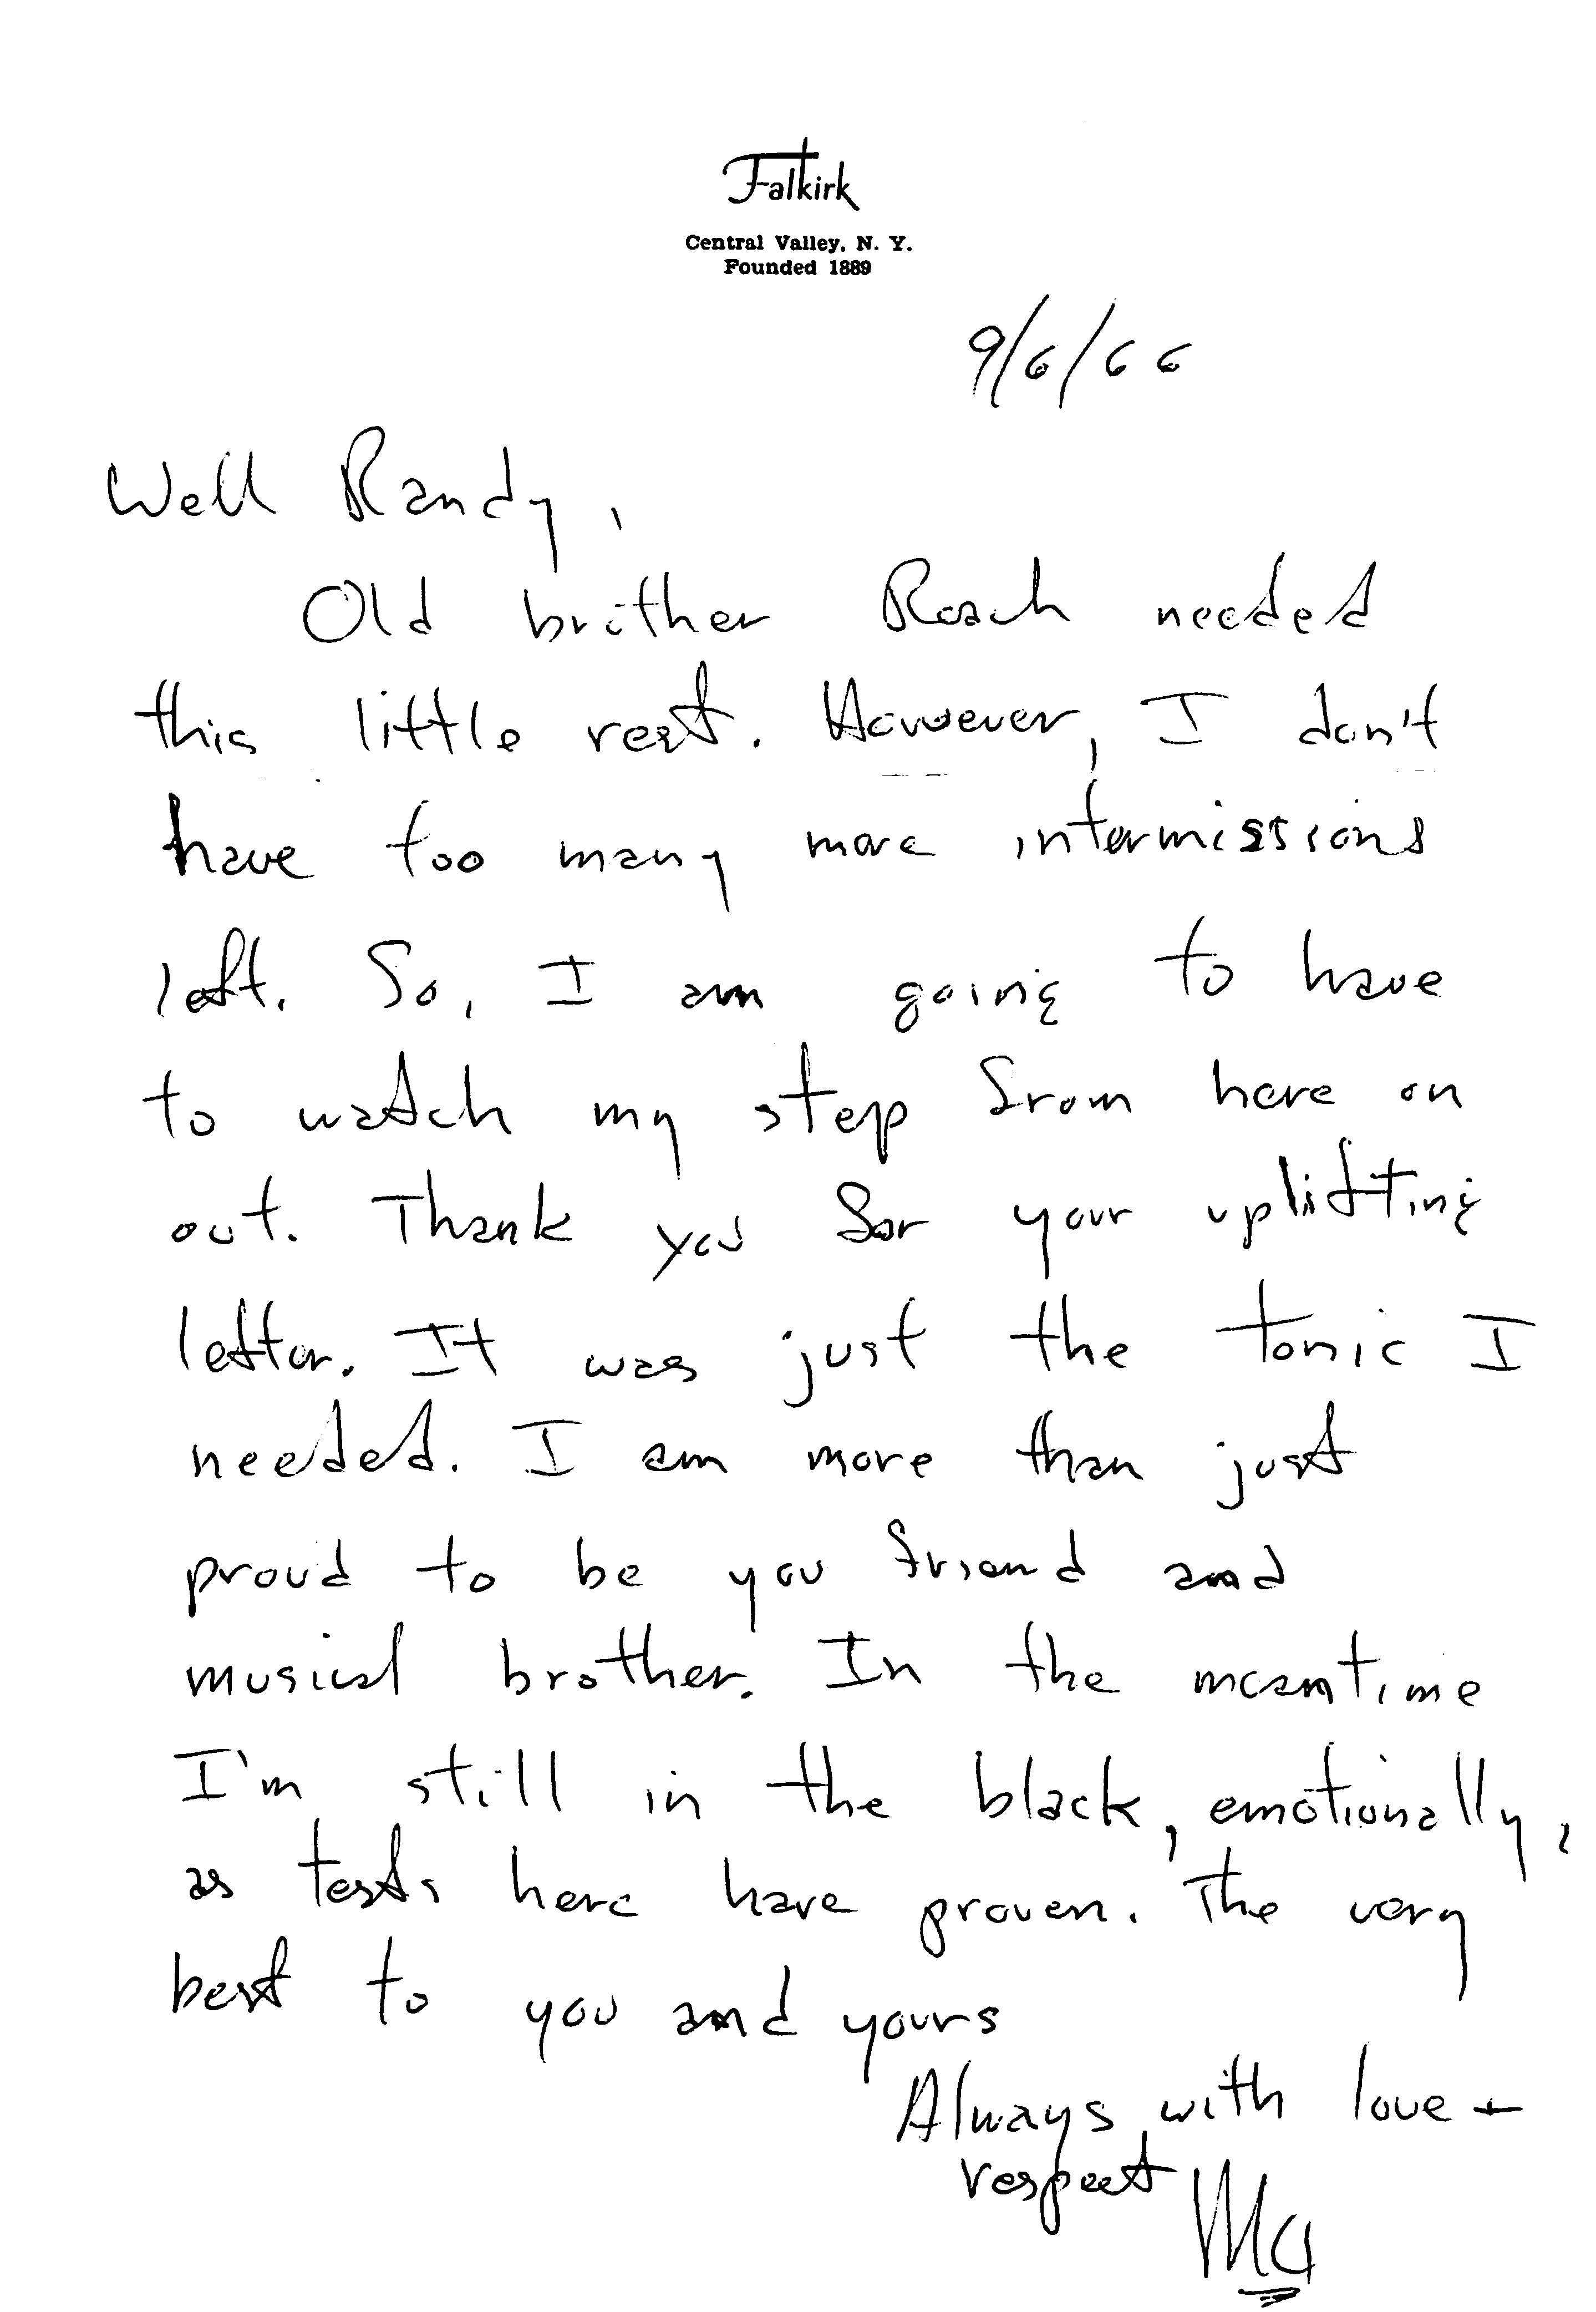 Falkirk
Central Valley, N. Y.
Founded 1889
9/6/66
Well Randy,
Old brother Roach needed
this little rest. However, I don't
have too many more intermissions
left. So, I am going to have
to watch my step from here on
out. Thank you for your uplifting
letter. It was just the tonic I
needed. I am more than just
proud to be you friend and
musical brother. In the meantime
I'm still in the black, emotionally,
as tests here have proven. The very
best to you and yours
Always with love +
respect